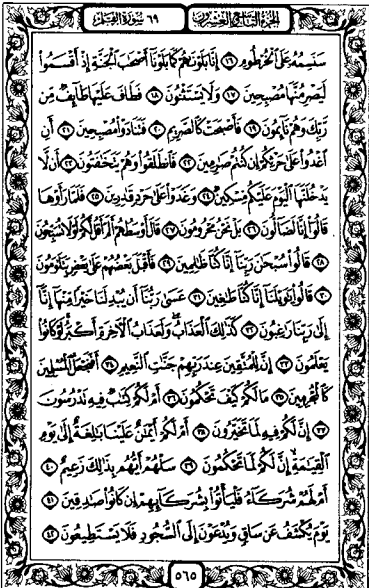 الجزء التاسع والعشرون ٦٩ سورة القلم
سَنَسِمُهُۥ عَلَى ٱلْخُرْطُومِ ١٦ إِنَّا بَلَوْنَٰهُمْ كَمَا بَلَوْنَآ أَصْحَٰبَ ٱلْجَنَّةِ إِذْ أَقْسَمُوا۟
لَيَصْرِمُنَّهَا مُصْبِحِينَ ١٧ وَلَا يَسْتَثْنُونَ ١٨ فَطَافَ عَلَيْهَا طَآئِفٌ مِّن
رَّبِّكَ وَهُمْ نَآئِمُونَ ١٩ فَأَصْبَحَتْ كَٱلصَّرِيمِ ٢٠ فَتَنَادَوْا۟ مُصْبِحِينَ ٢١ أَنِ
ٱغْدُوا۟ عَلَىٰ حَرْثِكُمْ إِن كُنتُمْ صَٰرِمِينَ ٢٢ فَٱنطَلَقُوا۟ وَهُمْ يَتَخَٰفَتُونَ ٢٣ أَن لَّا
يَدْخُلَنَّهَا ٱلْيَوْمَ عَلَيْكُم مِّسْكِينٌ ٢٤ وَغَدَوْا۟ عَلَىٰ حَرْدٍ قَٰدِرِينَ ٢٥ فَلَمَّا رَأَوْهَا
قَالُوٓا۟ إِنَّا لَضَآلُّونَ ٢٦ بَلْ نَحْنُ مَحْرُومُونَ ٢٧ قَالَ أَوْسَطُهُمْ أَلَمْ أَقُل لَّكُمْ لَوْلَا تُسَبِّحُونَ
٢٨ قَالُوا۟ سُبْحَٰنَ رَبِّنَآ إِنَّا كُنَّا ظَٰلِمِينَ ٢٩ فَأَقْبَلَ بَعْضُهُمْ عَلَىٰ بَعْضٍ يَتَلَٰوَمُونَ
٣٠ قَالُوا۟ يَٰوَيْلَنَآ إِنَّا كُنَّا طَٰغِينَ ٣١ عَسَىٰ رَبُّنَآ أَن يُبْدِلَنَا خَيْرًا مِّنْهَآ إِنَّآ
إِلَىٰ رَبِّنَا رَٰغِبُونَ ٣٢ كَذَٰلِكَ ٱلْعَذَابُ وَلَعَذَابُ ٱلْءَاخِرَةِ أَكْبَرُ لَوْ كَانُوا۟
يَعْلَمُونَ ٣٣ إِنَّ لِلْمُتَّقِينَ عِندَ رَبِّهِمْ جَنَّٰتِ ٱلنَّعِيمِ ٣٤ أَفَنَجْعَلُ ٱلْمُسْلِمِينَ
كَٱلْمُجْرِمِينَ ٣٥ مَا لَكُمْ كَيْفَ تَحْكُمُونَ ٣٦ أَمْ لَكُمْ كِتَٰبٌ فِيهِ تَدْرُسُونَ
٣٧ إِنَّ لَكُمْ فِيهِ لَمَا تَخَيَّرُونَ ٣٨ أَمْ لَكُمْ أَيْمَٰنٌ عَلَيْنَا بَٰلِغَةٌ إِلَىٰ يَوْمِ
ٱلْقِيَٰمَةِ إِنَّ لَكُمْ لَمَا تَحْكُمُونَ ٣٩ سَلْهُمْ أَيُّهُم بِذَٰلِكَ زَعِيمٌ ٤٠
أَمْ لَهُمْ شُرَكَآءُ فَلْيَأْتُوا۟ بِشُرَكَآئِهِمْ إِن كَانُوا۟ صَٰدِقِينَ ٤١
يَوْمَ يُكْشَفُ عَن سَاقٍ وَيُدْعَوْنَ إِلَى ٱلسُّجُودِ فَلَا يَسْتَطِيعُونَ ٤٢
٥٦٥